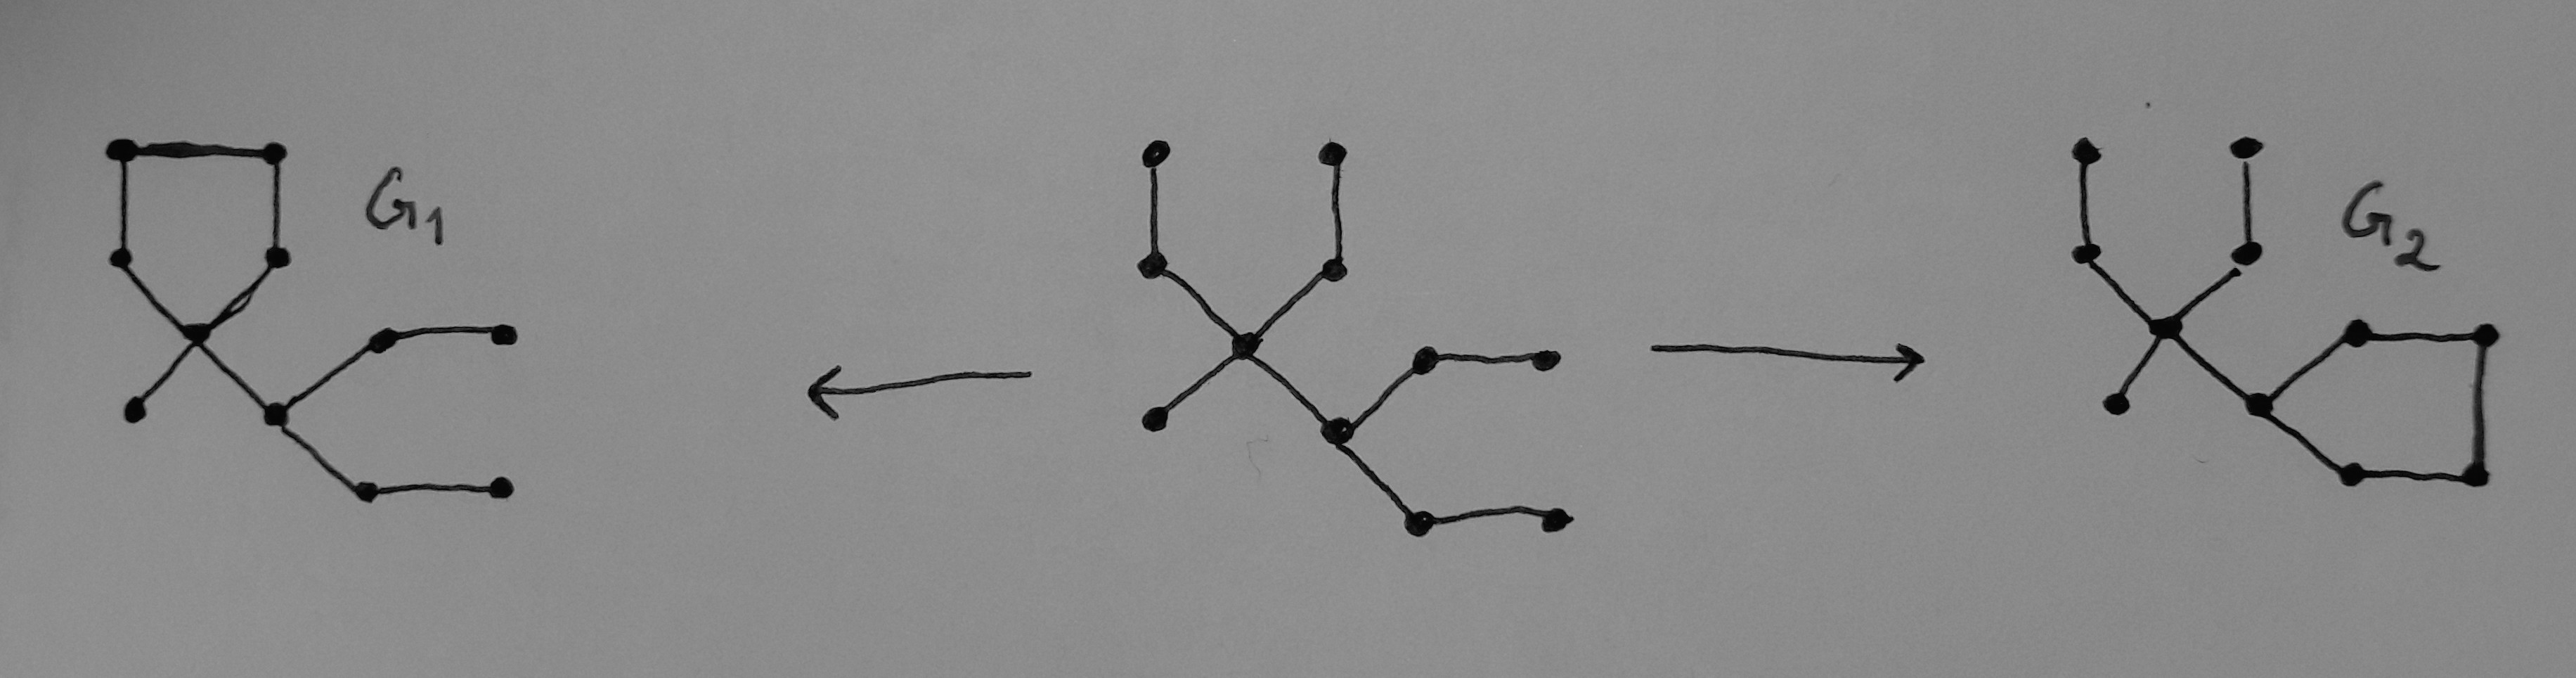 G₁
G₂